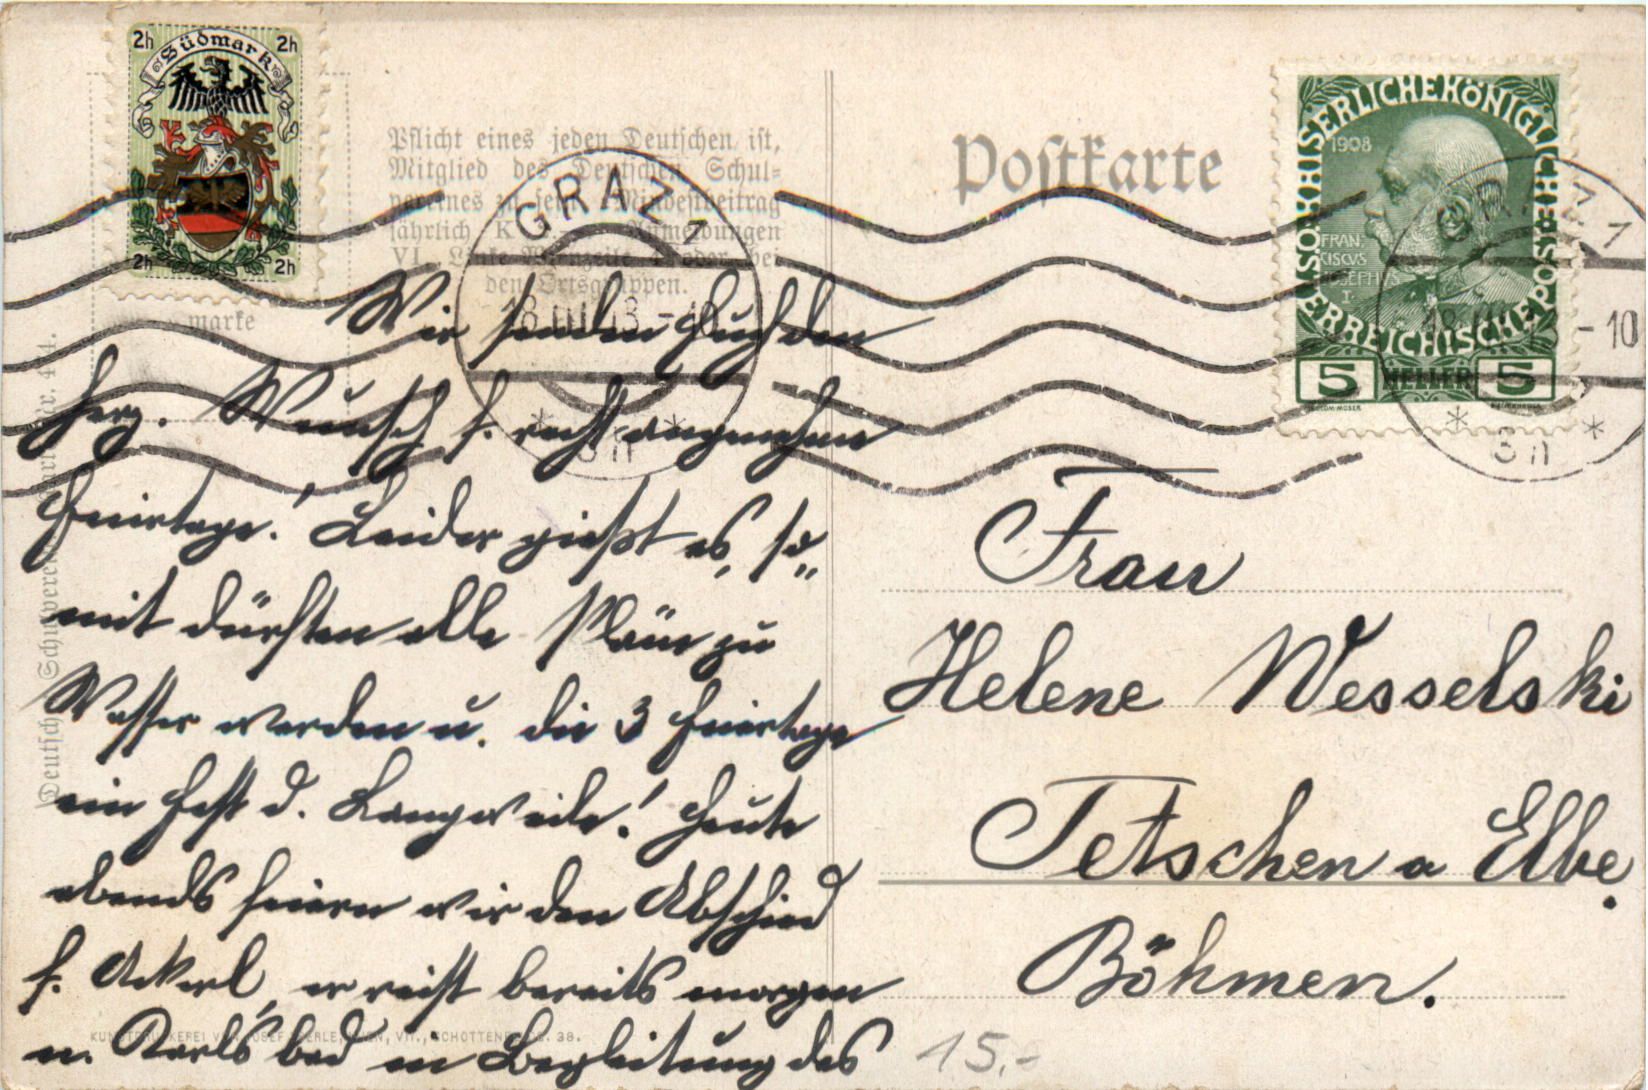 2h Südmark 2h
2h 2h
marke
Pflicht eines jeden Deutschen ist,
Mitglied des Deutschen Schul-
vereines zu sein. Mindestbeitrag
jährlich K Anmeldungen
VI., Linke Wienzeile oder bei
den Ortsgruppen.
GRAZ 1
18 III 13 - 10
* 3n *
Postkarte
KAISERLICHE KÖNIGLICHE ÖSTERREICHISCHE POST
1908
FRAN
CISCVS
IOSEPHVS
I.
5 HELLER 5
GRAZ 1
18 III 13 - 10
* 3n *
Wir senden Euch den
herz. Wunsch f. recht angenehme
Feiertage! Leider gießt es, so„
mit dürften alle Pläne zu
Wasser werden u. die 3 Feiertage
ein Fest d. Langweile! Heute
abends feiern wir den Abschied
f. Ackerl, er reist bereits morgen
n. Karlsbad in Begleitung des
Frau
Helene Wesselski
Tetschen a Elbe.
Böhmen.
Deutscher Schulverein Karte Nr.
KUNSTDRUCKEREI VON JOSEF EBERLE, WIEN, VII., SCHOTTENF 38.
15.-